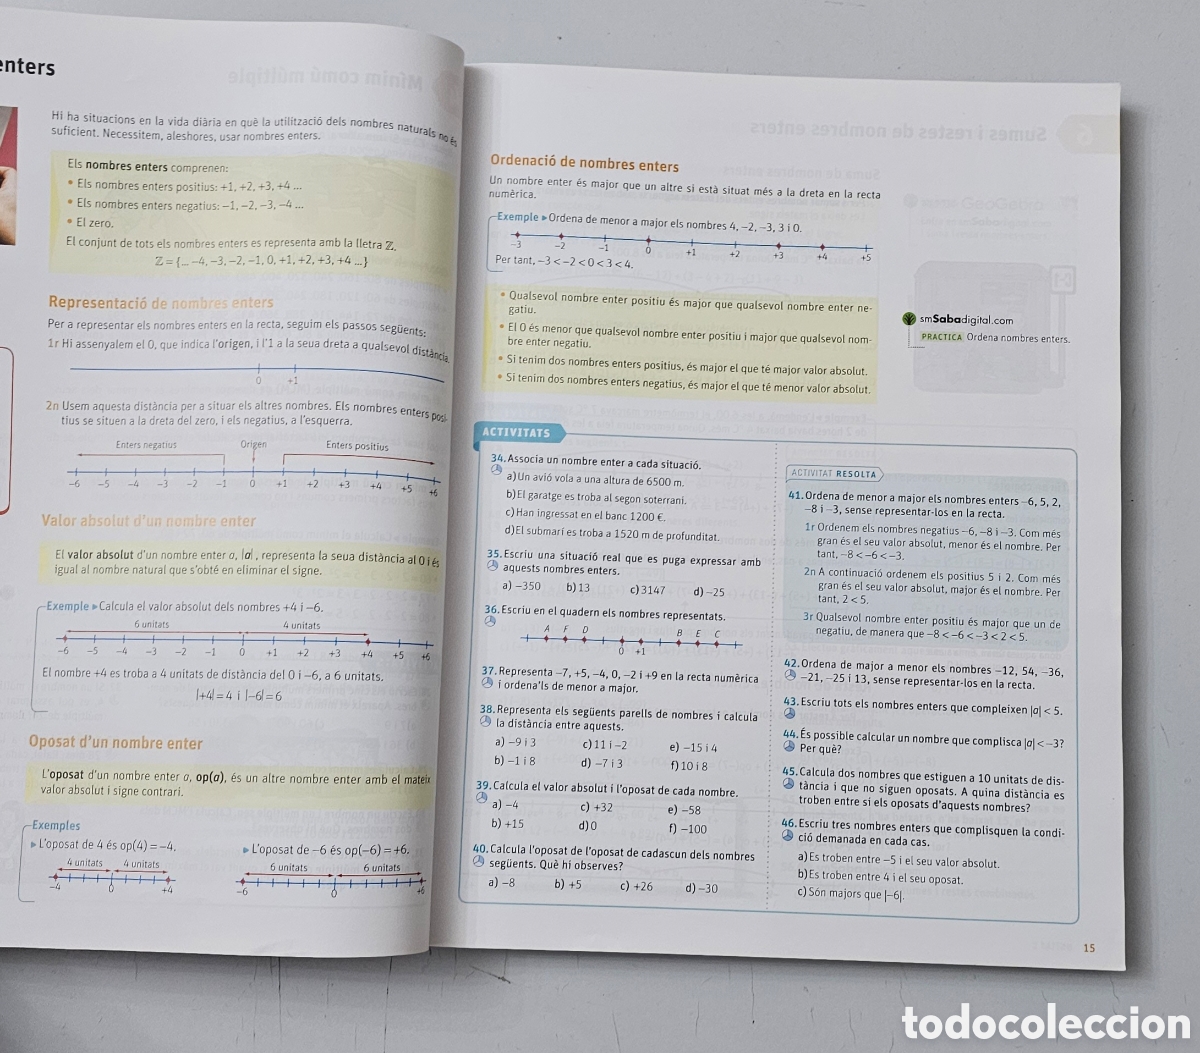 enters
Hi ha situacions en la vida diària en què la utilització dels nombres naturals no és
suficient. Necessitem, aleshores, usar nombres enters.
Els nombres enters comprenen:
• Els nombres enters positius: +1, +2, +3, +4 ...
• Els nombres enters negatius: −1, −2, −3, −4 ...
• El zero.
El conjunt de tots els nombres enters es representa amb la lletra ℤ.
ℤ = {... −4, −3, −2, −1, 0, +1, +2, +3, +4 ...}
Representació de nombres enters
Per a representar els nombres enters en la recta, seguim els passos següents:
1r Hi assenyalem el 0, que indica l'origen, i l'1 a la seua dreta a qualsevol distància.
0 +1
2n Usem aquesta distància per a situar els altres nombres. Els nombres enters posi-
tius se situen a la dreta del zero, i els negatius, a l'esquerra.
Enters negatius Origen Enters positius
−6 −5 −4 −3 −2 −1 0 +1 +2 +3 +4 +5 +6
Valor absolut d'un nombre enter
El valor absolut d'un nombre enter a, |a|, representa la seua distància al 0 i és
igual al nombre natural que s'obté en eliminar el signe.
Exemple ▸ Calcula el valor absolut dels nombres +4 i −6.
6 unitats 4 unitats
−6 −5 −4 −3 −2 −1 0 +1 +2 +3 +4 +5 +6
El nombre +4 es troba a 4 unitats de distància del 0 i −6, a 6 unitats.
|+4| = 4 i |−6| = 6
Oposat d'un nombre enter
L'oposat d'un nombre enter a, op(a), és un altre nombre enter amb el mateix
valor absolut i signe contrari.
Exemples
▸ L'oposat de 4 és op(4) = −4.
4 unitats 4 unitats
−4 0 +4
▸ L'oposat de −6 és op(−6) = +6.
6 unitats 6 unitats
−6 0 +6
Ordenació de nombres enters
Un nombre enter és major que un altre si està situat més a la dreta en la recta
numèrica.
Exemple ▸ Ordena de menor a major els nombres 4, −2, −3, 3 i 0.
−3 −2 −1 0 +1 +2 +3 +4 +5
Per tant, −3 < −2 < 0 < 3 < 4.
• Qualsevol nombre enter positiu és major que qualsevol nombre enter ne-
gatiu.
• El 0 és menor que qualsevol nombre enter positiu i major que qualsevol nom-
bre enter negatiu.
• Si tenim dos nombres enters positius, és major el que té major valor absolut.
• Si tenim dos nombres enters negatius, és major el que té menor valor absolut.
smSabadigital.com
PRACTICA Ordena nombres enters.
ACTIVITATS
34. Associa un nombre enter a cada situació.
a) Un avió vola a una altura de 6500 m.
b) El garatge es troba al segon soterrani.
c) Han ingressat en el banc 1200 €.
d) El submarí es troba a 1520 m de profunditat.
35. Escriu una situació real que es puga expressar amb
aquests nombres enters.
a) −350 b) 13 c) 3147 d) −25
36. Escriu en el quadern els nombres representats.
A F D B E C
0 +1
37. Representa −7, +5, −4, 0, −2 i +9 en la recta numèrica
i ordena'ls de menor a major.
38. Representa els següents parells de nombres i calcula
la distància entre aquests.
a) −9 i 3 c) 11 i −2 e) −15 i 4
b) −1 i 8 d) −7 i 3 f) 10 i 8
39. Calcula el valor absolut i l'oposat de cada nombre.
a) −4 c) +32 e) −58
b) +15 d) 0 f) −100
40. Calcula l'oposat de l'oposat de cadascun dels nombres
següents. Què hi observes?
a) −8 b) +5 c) +26 d) −30
ACTIVITAT RESOLTA
41. Ordena de menor a major els nombres enters −6, 5, 2,
−8 i −3, sense representar-los en la recta.
1r Ordenem els nombres negatius −6, −8 i −3. Com més
gran és el seu valor absolut, menor és el nombre. Per
tant, −8 < −6 < −3.
2n A continuació ordenem els positius 5 i 2. Com més
gran és el seu valor absolut, major és el nombre. Per
tant, 2 < 5.
3r Qualsevol nombre enter positiu és major que un de
negatiu, de manera que −8 < −6 < −3 < 2 < 5.
42. Ordena de major a menor els nombres −12, 54, −36,
−21, −25 i 13, sense representar-los en la recta.
43. Escriu tots els nombres enters que compleixen |a| < 5.
44. És possible calcular un nombre que complisca |a| < −3?
Per què?
45. Calcula dos nombres que estiguen a 10 unitats de dis-
tància i que no siguen oposats. A quina distància es
troben entre si els oposats d'aquests nombres?
46. Escriu tres nombres enters que complisquen la condi-
ció demanada en cada cas.
a) Es troben entre −5 i el seu valor absolut.
b) Es troben entre 4 i el seu oposat.
c) Són majors que |−6|.
15
todocoleccion